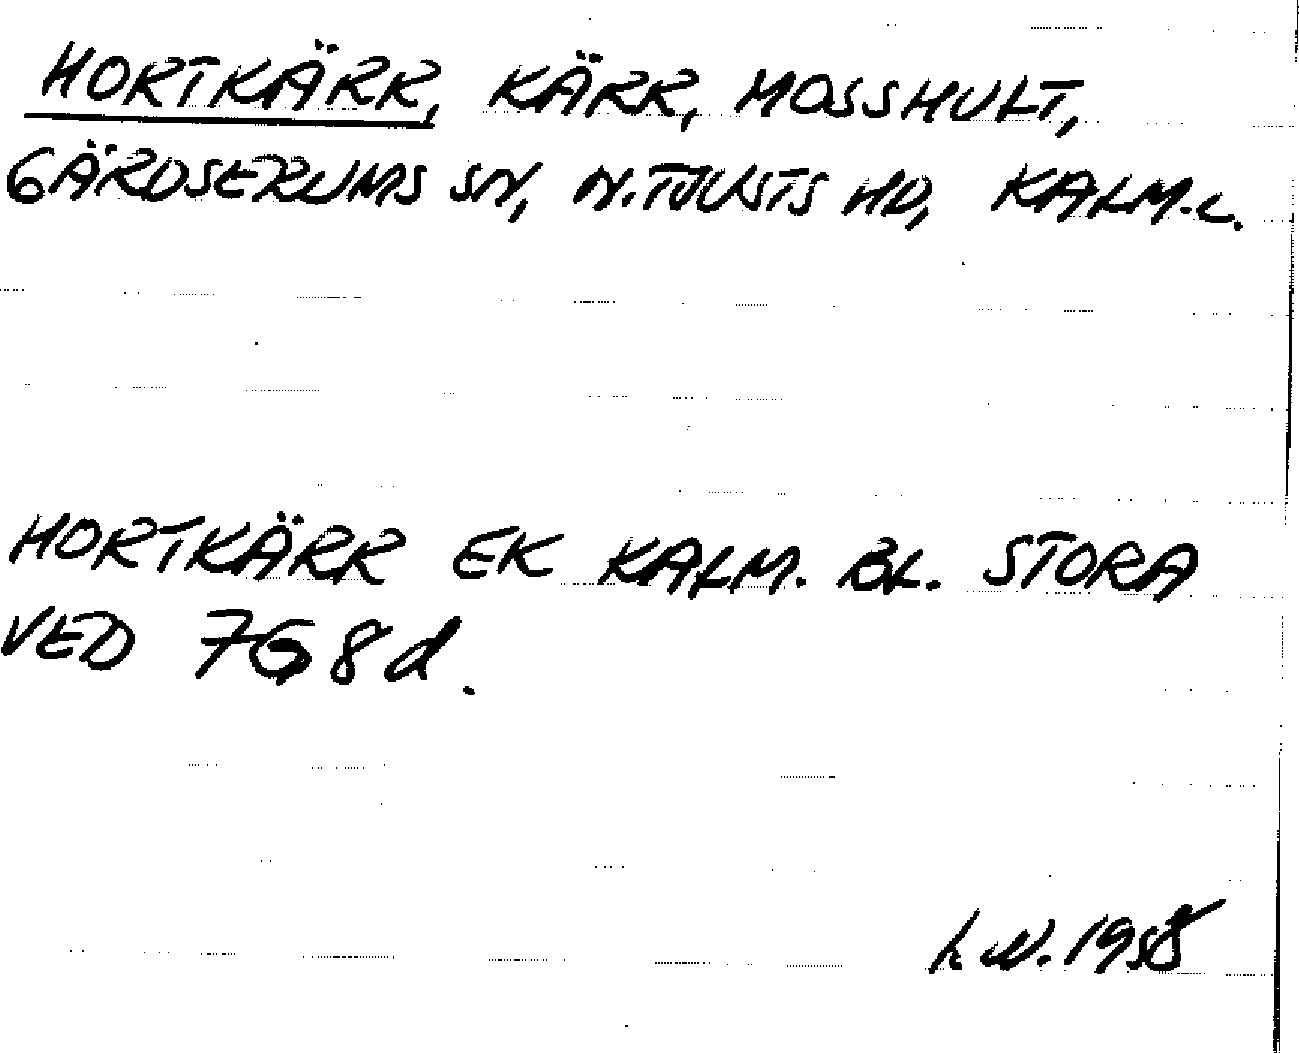 HORTKÄRR, KÄRR, MOSSHULT,
GÄRDSERUMS SN, N. TJUSTS HD, KALM. L.
HORTKÄRR EK KALM. BL. STORA
VED 7G8d.
L. N. 1958